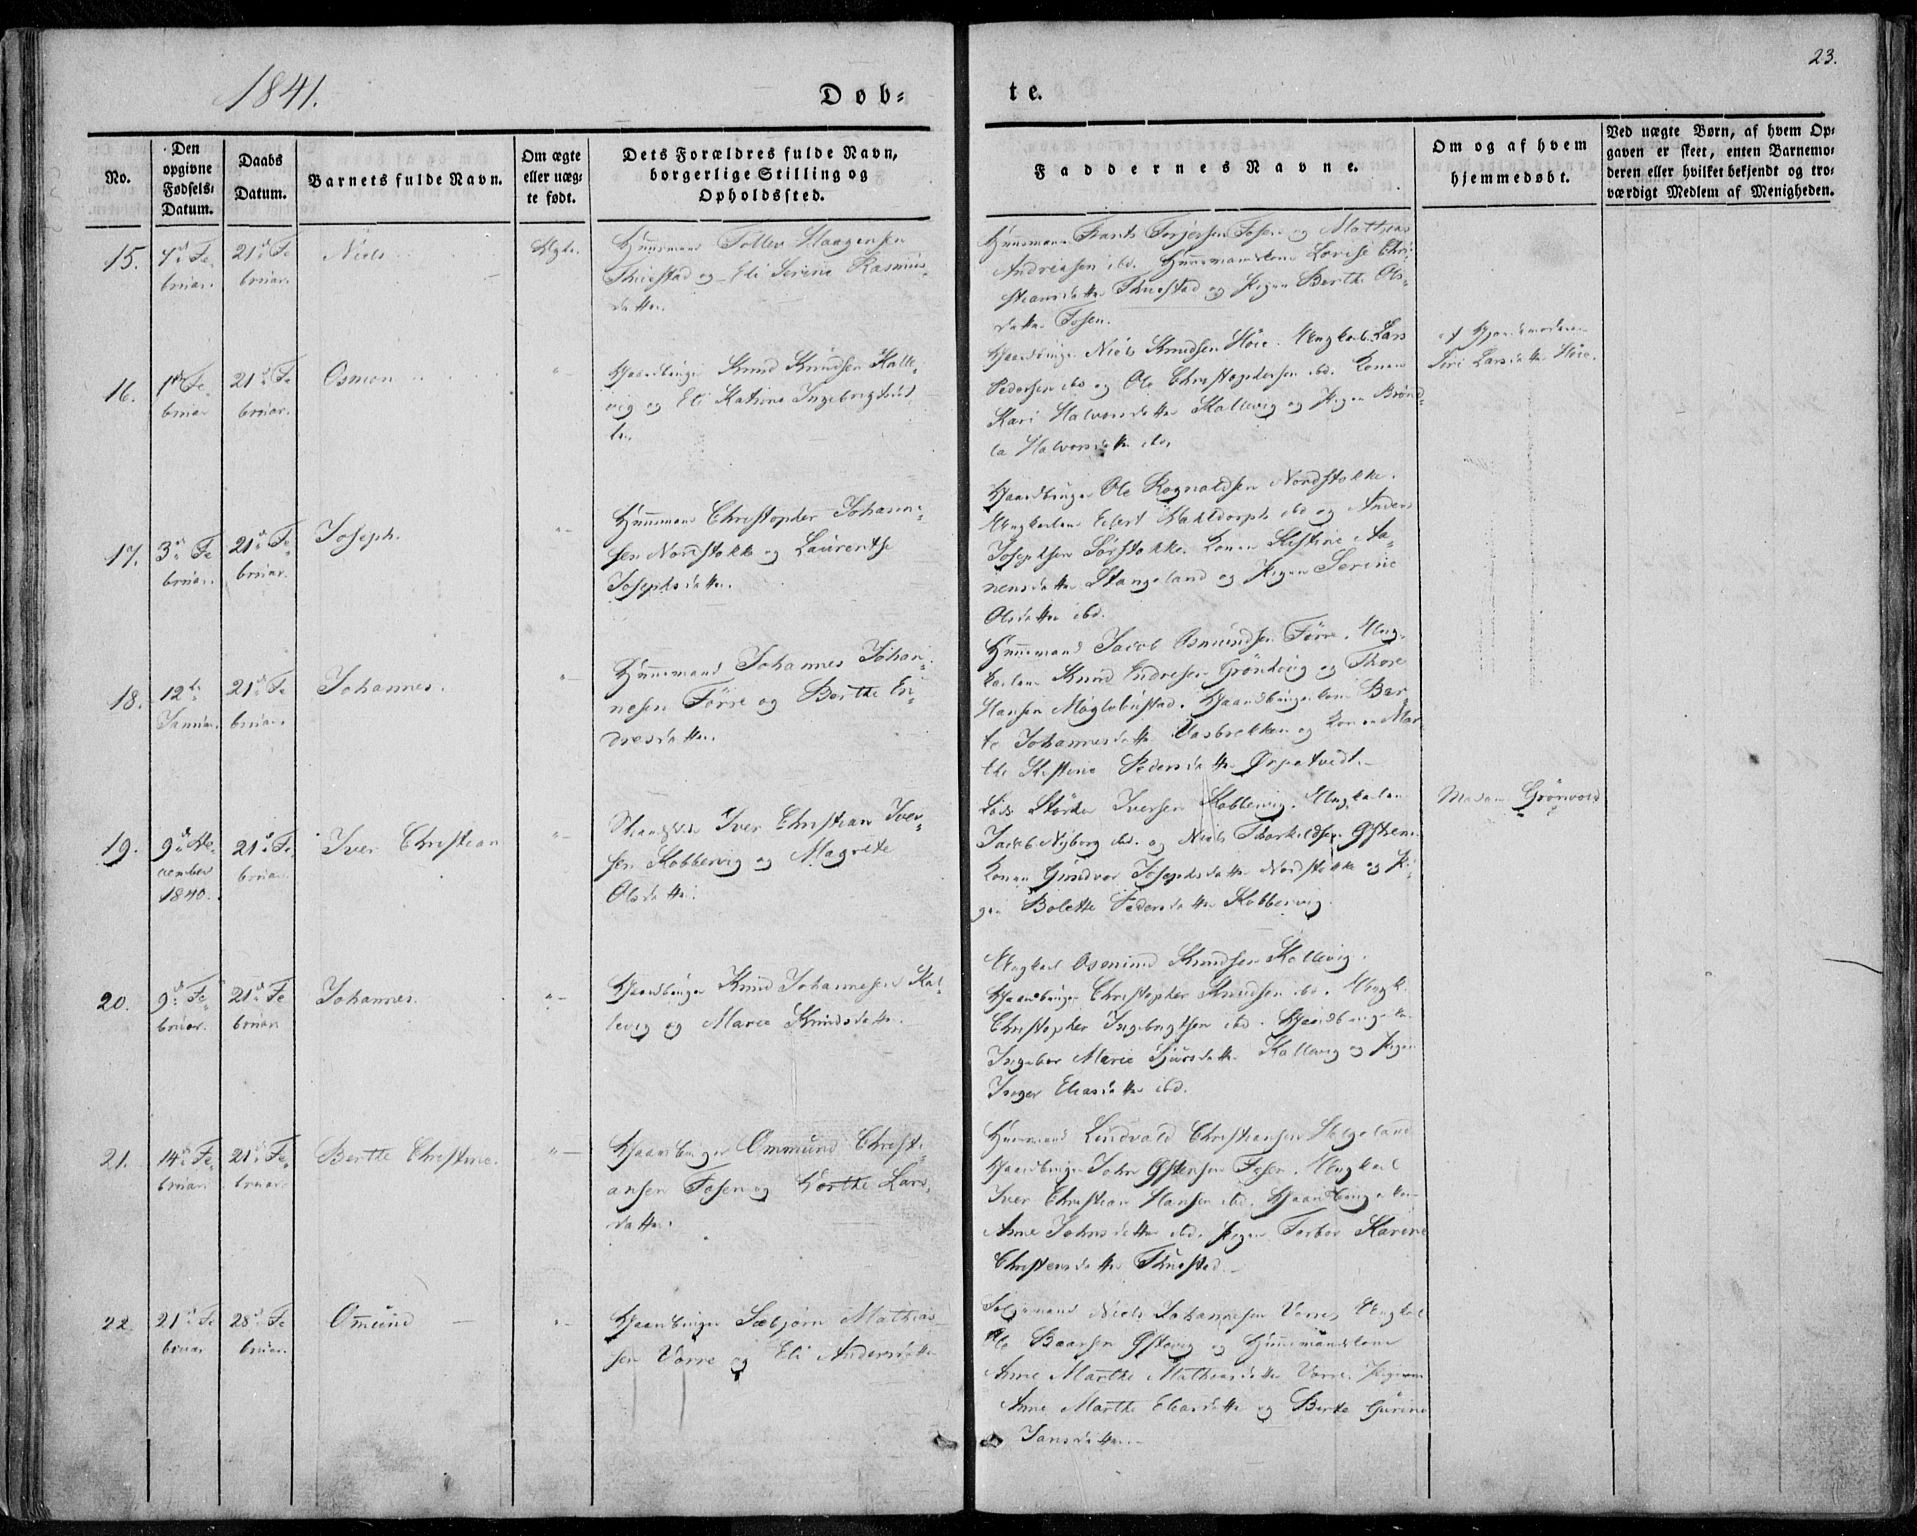 1841.
Døb-
te.
23.
No.
Den opgivne Fødsels-Datum.
Daabs Datum.
Barnets fulde Navn.
Om ægte eller uægte født.
Dets Forældres fulde Navn, borgerlige Stilling og Opholdssted.
Faddernes Navne.
Om og af hvem hjemmedøbt.
Ved uægte Børn, af hvem Opgaven er skeet, enten Barnemoderen eller hvilket bekjendt og troværdigt Medlem af Menigheden.
15.
Februar.
21d Fe
bruar.
Niels
Ægte.
Huusmand Tollev Haagensen
og Eli Serine Rasmus-
datter.
Huusmand Torjersen Fosen og Mathias
Andreasen ibd. Huusmandskone Lovise Chri-
stiansdatter og Pigen Berthe Ols-
datter Fosen.
16.
Fe
bruar
21d Fe
bruar.
Osmon
"
Gaardbruger Knud Knudsen Kalle-
vig og Eli Katrine Ingebrigtsdat-
ter
Gaardbruger Niels Knudsen Høie. Ungkarl Lars
Pedersen ibd og Ole Christophersen ibd. Konen
Kari Halvorsdatter Kallevig og Pigen Brønd-
la Halvorsdatter ibd.
af Gjordemoderen
Siri Larsdatter Høie.
17.
3d Fe
bruar.
21d Fe-
bruar.
Joseph.
"
Huusmand Christopher Johanne-
sen Nordstokke og Laurentse
Josephsdatter.
Gaardbruger Ole Rognaldsen Nordstokke.
Ungkarlene Eilert ibd og Anders
Josephsen Sørstokke. Konen Kistine Aa-
nensdatter Stangeland og Pigen Serine
Olsdatter ibd.
18.
12te
Januar.
21d Fe
bruar.
Johannes.
"
Huusmand Johannes Johan-
nesen Førre og Berthe En-
dresdatter.
Huusmand Jacob Osmundsen Førre. Ung-
karlene Knud Endresen Grøndvig og Thore
Hansen Møglebustad. Gaardbrugerkone Ber-
te Johannesdatter Vasbrekken og Konen Mar
the Kistine Pedersdatter Ørpetvedt.
19.
9d No-
vember
1840.
21d Fe-
bruar.
Iver Christian
"
Strandsidder Iver Christian Iver-
sen Kobbervig og Magrete
Olsdatter.
Lods Størker Iversen Kobbervig. Ungkarlene
Jacob Nyborg ibd. og Niels Thorkildsen Østhen
Konen Gundvor Josephsdatter Nordstokke og Pi-
gen Bolette Pedersdatter Kobbervig.
Madam Grønvold
20.
9d Fe-
bruar.
21d Fe
bruar.
Johannes.
"
Gaardbruger Knud Johannesen Kal-
levig og Maren Knudsdatter.
Ungkarl Osmund Knudsen Kallevig.
Gaardbruger Christopher Knudsen ibd. Ungk.
Christopher Ingebrigtsen ibd. Gaardbrugerko
Ingebor Marie Sjursdatter Kallevig og Pigen
Inger Eliasdatter ibd.
21.
14d Fe-
bruar.
21d Fe-
bruar.
Berthe Christine.
"
Gaardbruger Ommund Christi-
ansen Fosen og Dorthe Lars-
datter.
Huusmand Lindvald Christiansen Helgeland
Gaardbruger John Østensen Fosen. Ungkarl
Iver Christian Hansen ibd. Gaardbrugerkone
Anne Johnsdatter ibd. Pigen Torbor Karine
Christensdatter
22.
21d Fe
bruar
28d Fe-
bruar.
Omund
"
Gaardbruger Sæbjørn Mathias-
sen Vorre og Eli Andersdatter
Niels Johannesen Vorre, Ungkarl
Ole Baarsen Østevig og Huusmandskone
Anne Marthe Mathiasdatter Vorre. Pigerne
Anne Marthe Eliasdatter og Berte Gurine
Jansdatter.